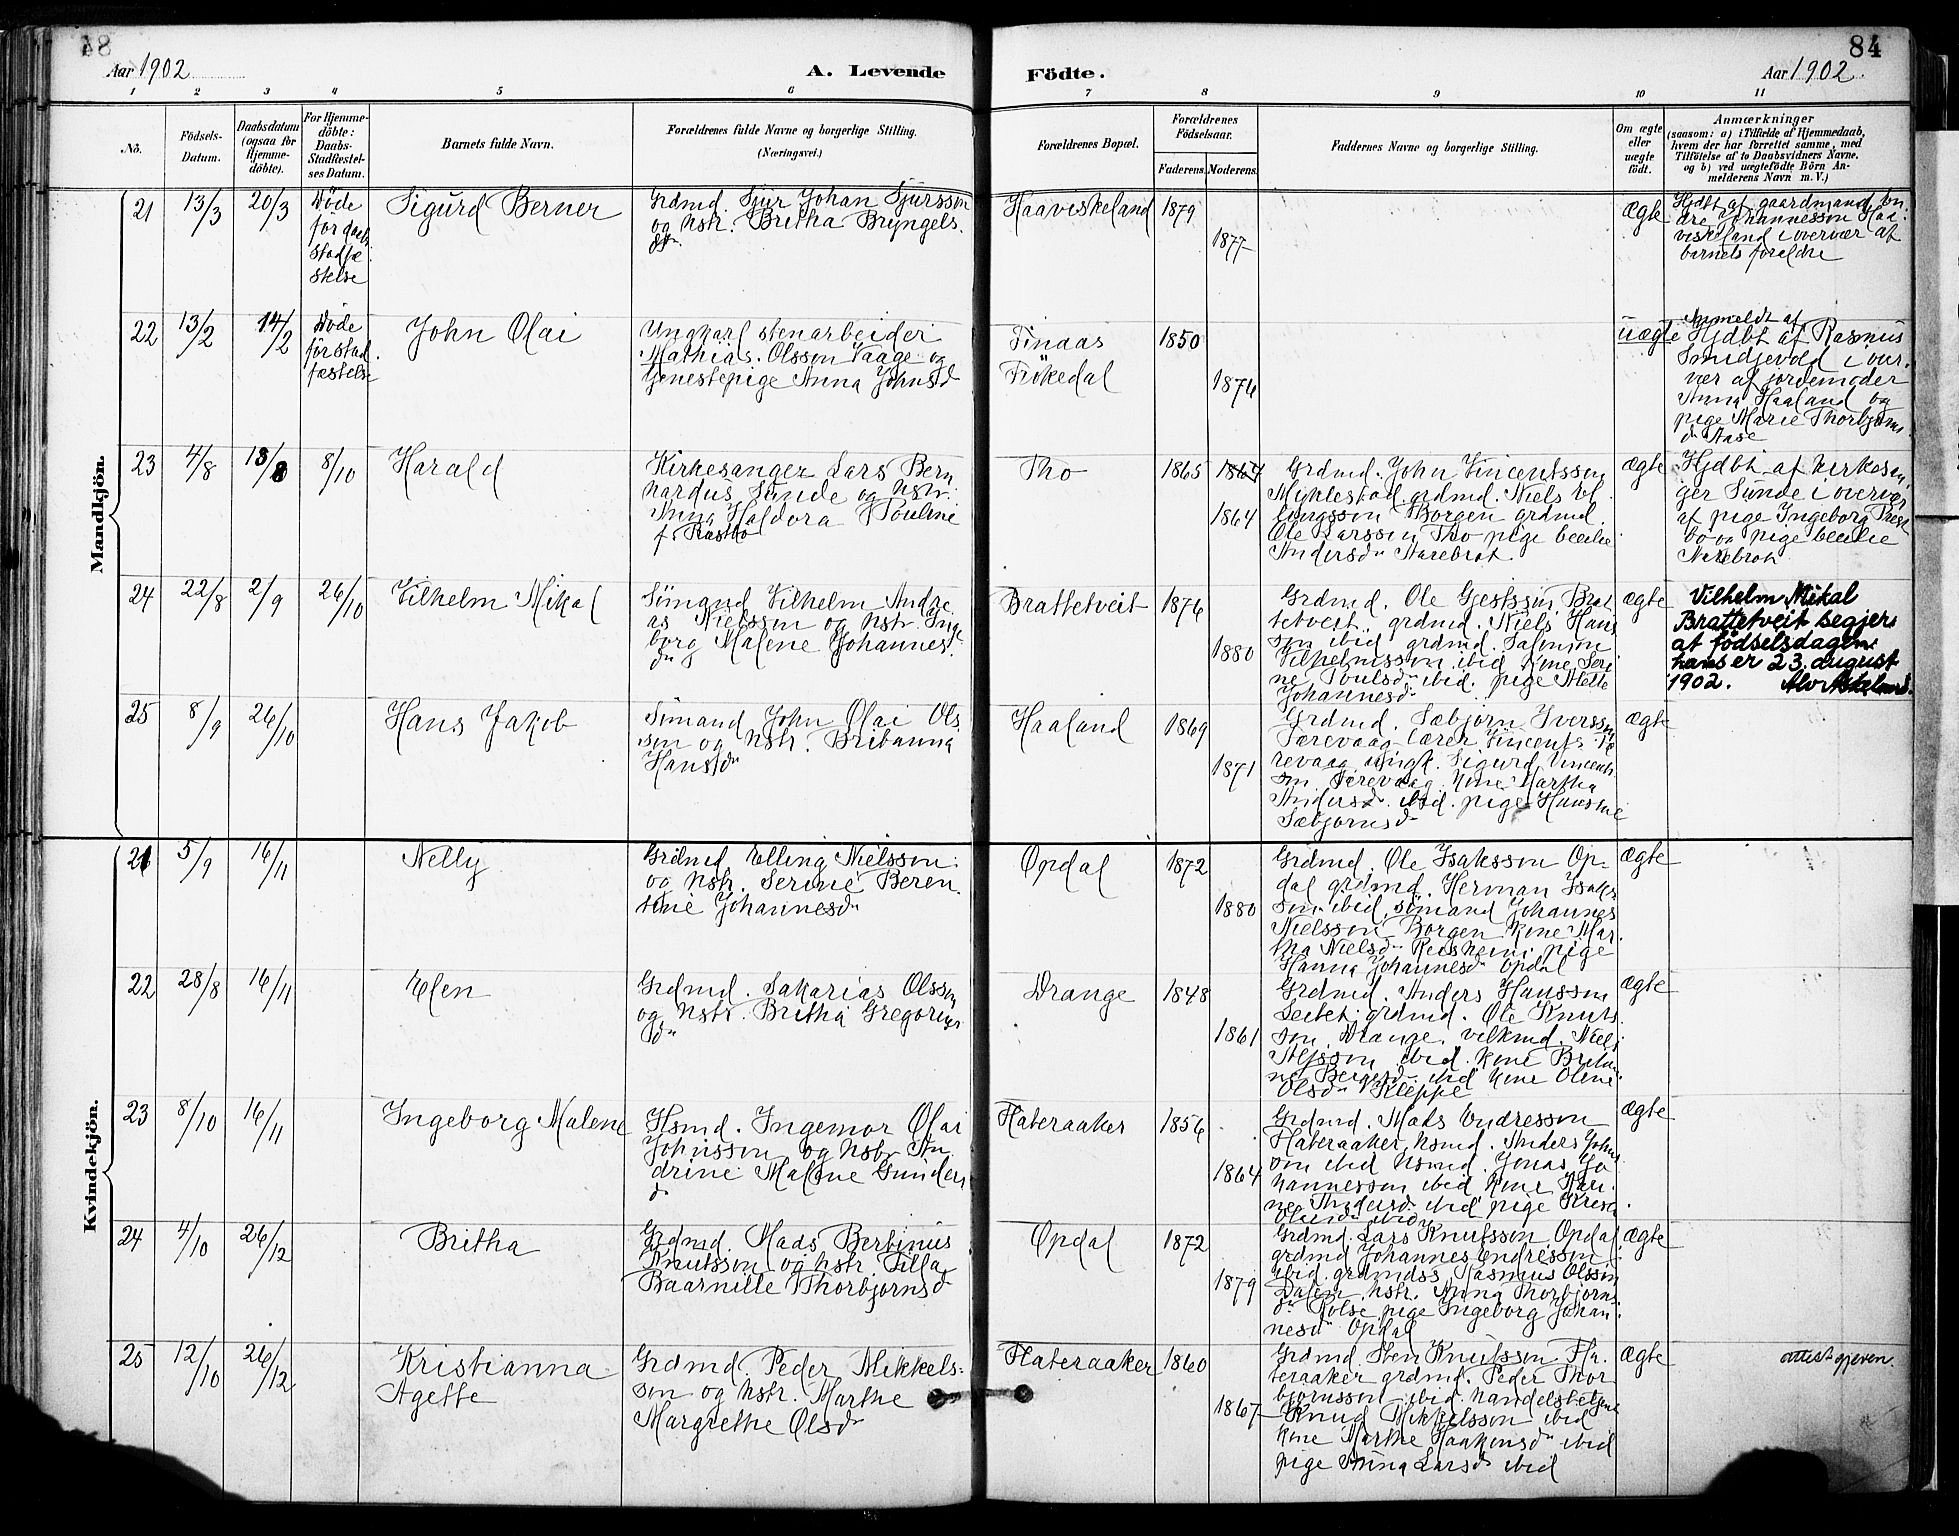 84
Aar 1902
A. Levende Födte.
Aar 1902.
1 2 3 4 5 6 7 8 9 10 11
No.
Födsels-
Datum.
Daabsdatum
(ogsaa for
Hjemme-
döbte).
For Hjemme-
döbte:
Daabs-
Stadfæstel-
ses Datum.
Barnets fulde Navn.
Forældrenes fulde Navne og borgerlige Stilling.
(Næringsvei.)
Forældrenes Bopæl.
Forældrenes
Födselsaar.
Faderens. Moderens.
Faddernes Navne og borgerlige Stilling.
Om ægte
eller
uægte
födt.
Anmærkninger
(saasom: a) i Tilfælde af Hjemmedaab,
hvem der har forrettet samme, med
Tilföielse af to Daabsvidners Navne.
og b) ved uægtefödte Börn An-
melderens Navn m. V.)
Mandkjön.
21 13/3 20/3
Døde
før daabs
stadfæ
stelse
Sigurd Berner
Grdmd. Sjur Johan Sjursson
og hstr. Britha Bryngels.
dtr
Haaviskeland 1879
1877
ægte
Hjdbt af gaardmand En
dre Johannesson Haa-
viskeland i overvær af
barnets forældre
22 13/2 14/2
Døde
før stad.
fæstelse
John Olai
Ungkarl stenarbeider
Mathias Olsson Vaage og
tjenestepige Anna Johnsd
Finaas
Frøkedal
1850
1876
uægte
Anmeldt af
Hjdbt af Rasmus
Smidjevold i over.
vær af jordemoder
Anna Haaland og
pige Marie Thorbjørns
dr Aase
23 4/8 13/8 8/10
Harald
Kirkesanger Lars Bern
hardus Sunde og hstr.
Anna Haldora Pouline
f. Rastbø
Tho
1865 1864
1864
Grdmd. John Vincentsson
Myklestad. grdmd. Niels El
lingsson Borgen grdmd.
Ole Larsson Tho pige Cecilie
Andersdr Aarebrot.
ægte
Hjdbt af kirkesan.
ger Sunde i overvær
af pige Ingeborg Rast
bø og pige Cecilie
Aarebrot
24 22/8 2/9 26/10
Vilhelm Mikal
Sømand Vilhelm Andre
as Nielsson og hstr. Inge
borg Malene Johannes.
dr
Brattetveit 1876
1880
Grdmd. Ole Gjestsson Brat
tetveit. grdmd. Niels Hans
son ibid grdmd. Salomon
Vilhelmsson ibid kone Seri
ne Poulsdr ibid. pige Mette
Johannesdr
ægte
Vilhelm Mikal
Brattetveit segjer
at fødselsdagen
hans er 23. august
1902.
25 8/9 26/10
Hans Jakob
Sømand John Olai Ols
son og hstr. Britanna
Hansdr
Haaland 1869
1871
Grdmd. Sæbjørn Iversson
Særevaag lærer Vincents Sæ
revaag ungk. Sigurd Vincents
son Særevaag kone Martha
Andersdr ibid. pige Hansine
Sæbjørnsdr
ægte
Kvindekjön.
21 5/9 16/11
Nelly
Grdmd. Elling Nielsson
og hstr. Serine Beren
tine Johannesdr
Opdal 1872
1880
Grdmd. Ole Isaksson Op-
dal grdmd. Herman Isaks
son ibid. sømand Johannes
Nielsson Borgen kone Mar
tha Nielsdr Reisheim pige
Hanna Johannesdr Opdal
ægte
22 28/8 16/11
Elen
Grdmd. Sakarias Olsson
og hstr. Britha Gregorius
dr
Drange 1848
1861
Grdmd. Anders Hansson
grdmd. Ole Knuts
son Drange. Niels
ibid. kone
ibid kone Oline
Olsdr Kleppe
ægte
23 8/10 16/11
Ingeborg Malene
Hsmd. Ingemor Olai
Johnsson og hstr. An
drine Malene Gunders
dr
Flateraaker 1856
1864
Grdmd. Mads Endresson
Flateraaker hsmd. Anders Johns
son ibid hsmd. Jonas Jo
hannesson ibid kone Kari
ne Andersdr ibid pige
ibid
ægte
24 4/10 26/12
Britha
Grdmd. Mads Bertinus
Knutsson og hstr. Silla
Baarnille Thorbjørnsd
Opdal 1872
1879
Grdmd. Lars Knutsson Opdal
grdmd Johannes Endresson
ibid. grdmdss Rasmus Olsson
Dalen hstr. Anna Thorbjørns
dr Rolse pige Ingeborg Johan
nesdr Opdal
ægte
25 12/10 26/12
Kristianna
Agette
Grdmd. Peder Mikkels-
son og hstr. Marthe
Margrethe Olsdr
Flateraaker 1860
1867
Grdmd. Sten Knutsson Fla.
teraaker grdmd. Peder Thor
bjørnsson ibid. handelsbetjent
Knud Mikkelsson ibid
kone Marthe Haakonsdr ibid
pige Anna Larsd ibid
ægte
attest gjeven